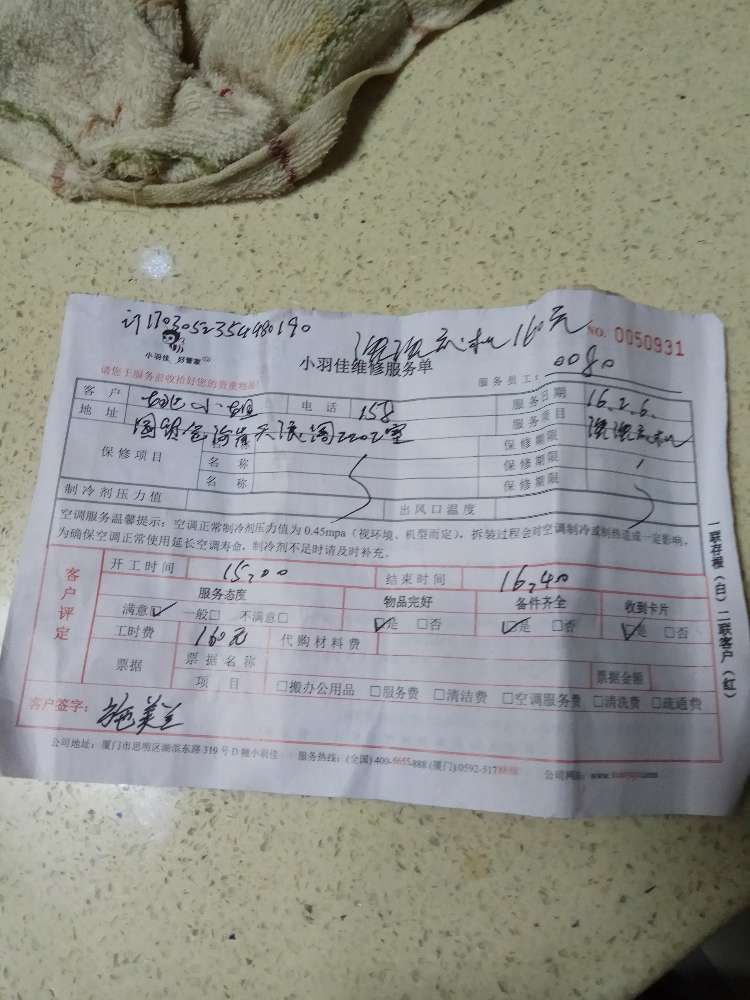 订1703052354980190
160元 NO. 0050931
小羽佳 好管家
小羽佳维修服务单
请您于服务前收拾好您的贵重物品!
服务员工: 0080
客户 小姐 电话 158 服务日期 16.2.6.
地址 2202室 服务项目
保修项目 名称 保修期限
名称 保修期限
保修期限
制冷剂压力值 出风口温度
空调服务温馨提示: 空调正常制冷剂压力值为 0.45mpa (视环境、机型而定), 拆装过程会对空调制冷或制热造成一定影响,
为确保空调正常使用延长空调寿命, 制冷剂不足时请及时补充。
客户评定
开工时间 15:00 结束时间 16:40
服务态度 物品完好 备件齐全 收到卡片
满意☑ 一般□ 不满意□ ☑是 □否 ☑是 □否 ☑是 □否
工时费 160元 代购材料费
票据 票据名称 票据金额
项目 □搬办公用品 □服务费 □清洁费 □空调服务费 □清洗费 □疏通费
客户签字:
公司地址: 厦门市思明区湖滨东路 319 号 D 幢小羽佳 服务热线: (全国) 400-6655-888 (厦门) 0592-517 公司网址: www.
一联存根 (白) 二联客户 (红)